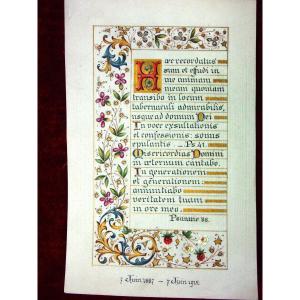 Hæc recordatus
sum et effudi in
me animam
meam quoniam
transibo in locum
tabernaculi admirabilis,
usque ad domum Dei
In voce exsultationis
et confessionis: sonus
epulantis — Ps 41.
Misericordias Domini
in æternum cantabo.
In generationem
et generationem:
annuntiabo
veritatem tuam
in ore meo.
Psaume 88.
7 Juin 1887 — 7 Juin